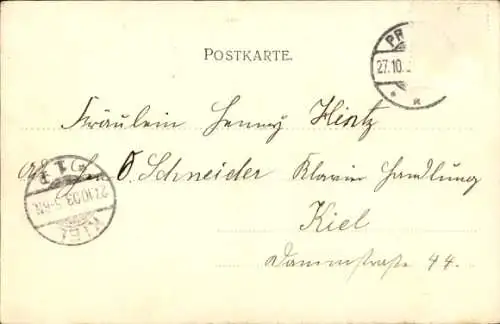 POSTKARTE.
PR
27.10.
Fräulein Henny Hintz
O. Schneider Klavier Handlung
Kiel
Dammstraße 44.
27.10.03. 5-6N.
KIEL